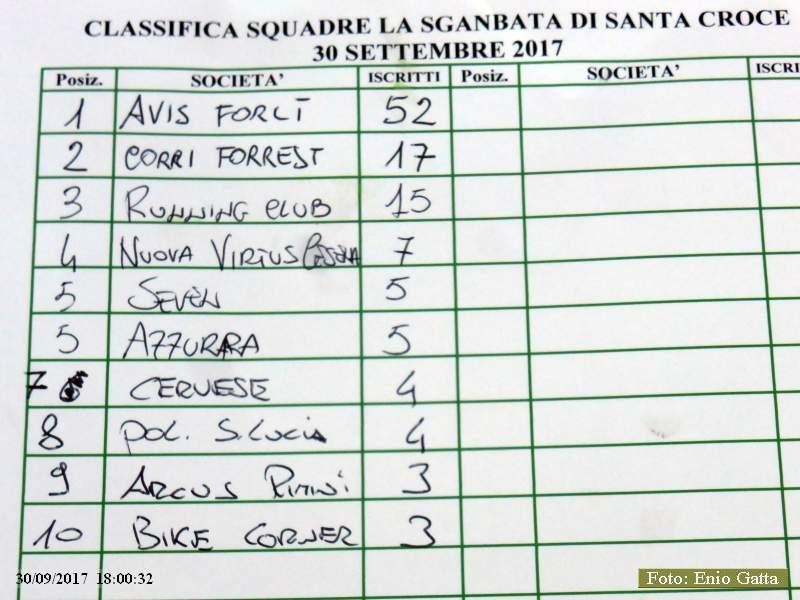 CLASSIFICA SQUADRE LA SGANBATA DI SANTA CROCE
30 SETTEMBRE 2017
Posiz. SOCIETA' ISCRITTI Posiz. SOCIETA' ISCRI
1 AVIS FORLÌ 52
2 CORRI FORREST 17
3 RUNNING CLUB 15
4 NUOVA VIRTUS CESENA 7
5 SEVEN 5
5 AZZURRA 5
7 CERVESE 4
8 POL. S. LUCIA 4
9 ARCUS RIMINI 3
10 BIKE CORNER 3
30/09/2017 18:00:32
Foto: Enio Gatta